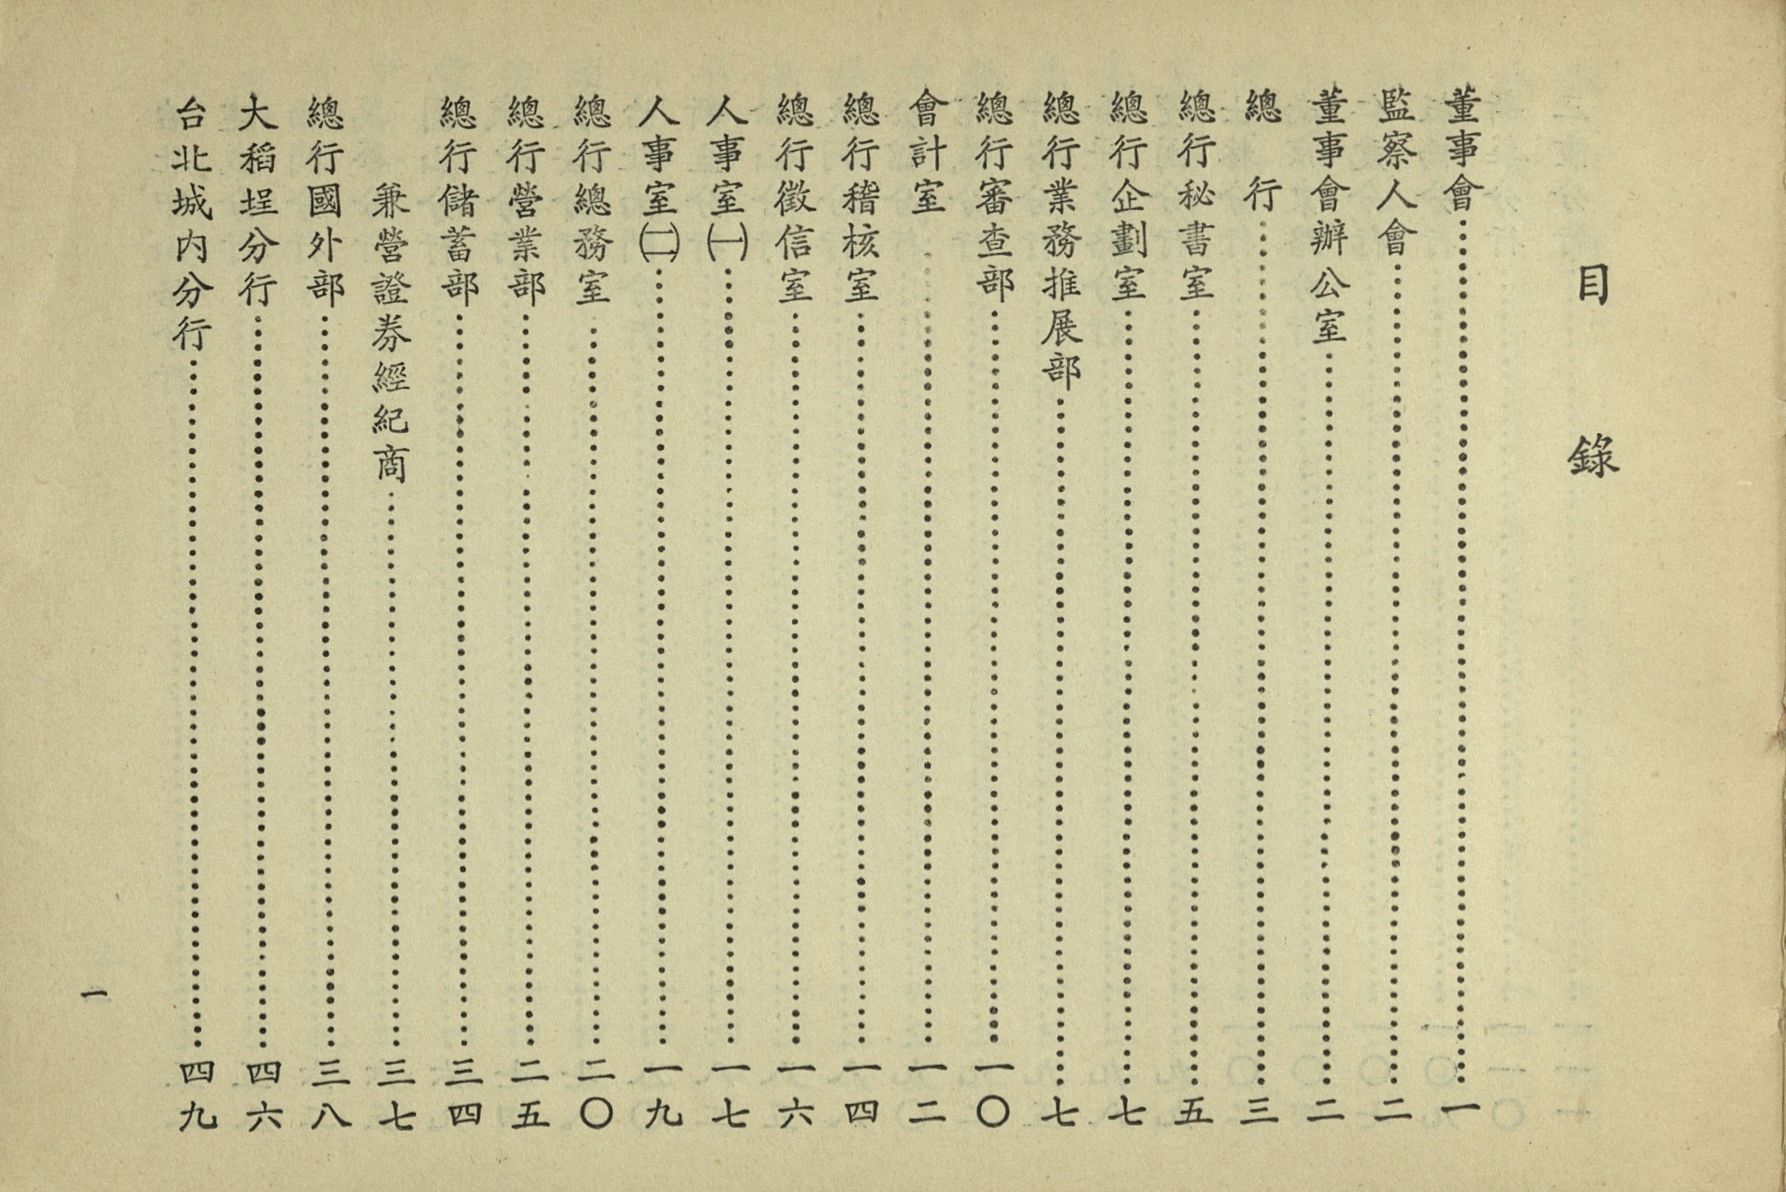 目錄
董事會……一
監察人會……二
董事會辦公室……二
總行……三
總行秘書室……五
總行企劃室……七
總行業務推展部……七
總行審查部……一〇
會計室……一二
總行稽核室……一四
總行徵信室……一六
人事室㈠……一七
人事室㈡……一九
總行總務室……二〇
總行營業部……二五
總行儲蓄部……三四
兼營證券經紀商……三七
總行國外部……三八
大稻埕分行……四六
台北城內分行……四九
一